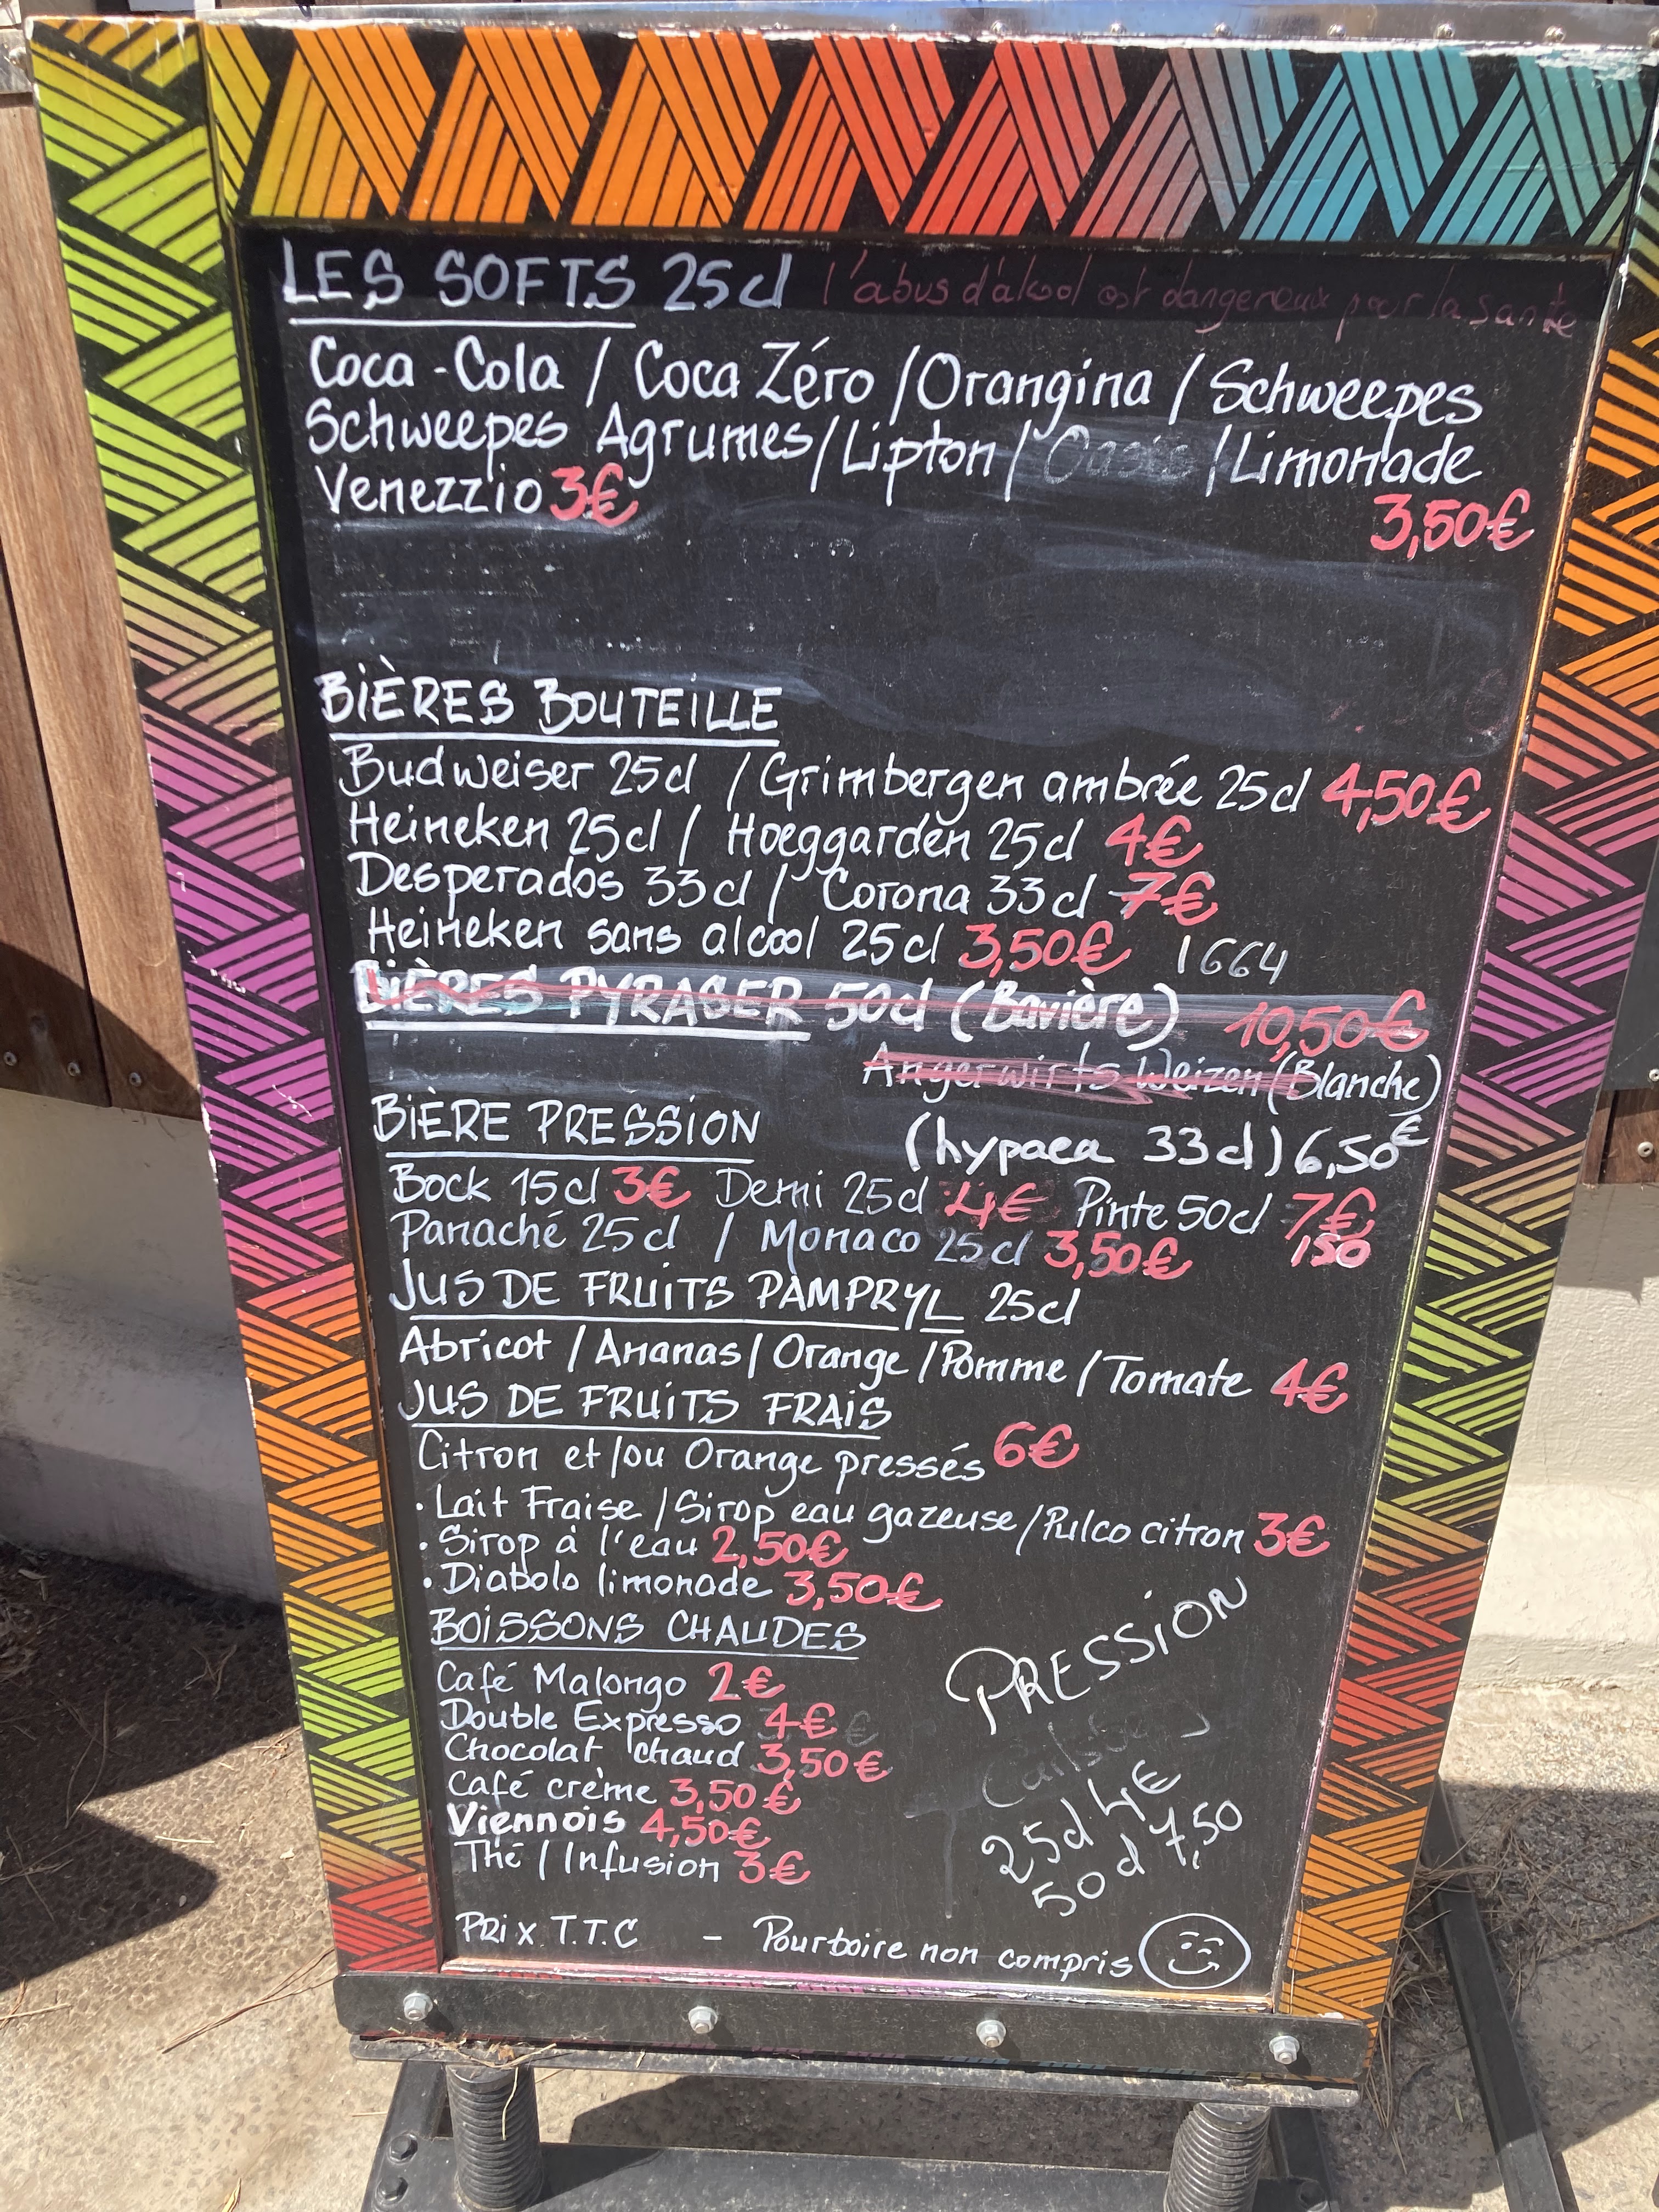 LES SOFTS 25cl l'abus d'alcool est dangereux pour la santé
Coca-Cola / Coca Zéro / Orangina / Schweepes
Schweepes Agrumes / Lipton / Oasis / Limonade
Venezzio 3€ 3,50€
BIÈRES BOUTEILLE
Budweiser 25cl / Grimbergen ambrée 25cl 4,50€
Heineken 25cl / Hoeggarden 25cl 4€
Desperados 33cl / Corona 33cl 7€
Heineken sans alcool 25cl 3,50€ 1664
BIÈRES PYRASER 50cl (Bavière) 10,50€
Angerwirts Weizen (Blanche)
BIÈRE PRESSION (hypaea 33cl) 6,50€
Bock 15cl 3€ Demi 25cl 4€ Pinte 50cl 7€
Panaché 25cl / Monaco 25cl 3,50€ 150
JUS DE FRUITS PAMPRYL 25cl
Abricot / Ananas / Orange / Pomme / Tomate 4€
JUS DE FRUITS FRAIS
Citron et/ou Orange pressés 6€
• Lait Fraise / Sirop eau gazeuse / Pulco citron 3€
• Sirop à l'eau 2,50€
• Diabolo limonade 3,50€
BOISSONS CHAUDES
Café Malongo 2€
Double Expresso 4€ €
Chocolat chaud 3,50€
Café crème 3,50€
Viennois 4,50€
Thé / Infusion 3€
PRESSION
25cl 4€
50cl 7,50
Prix T.T.C - Pourboire non compris